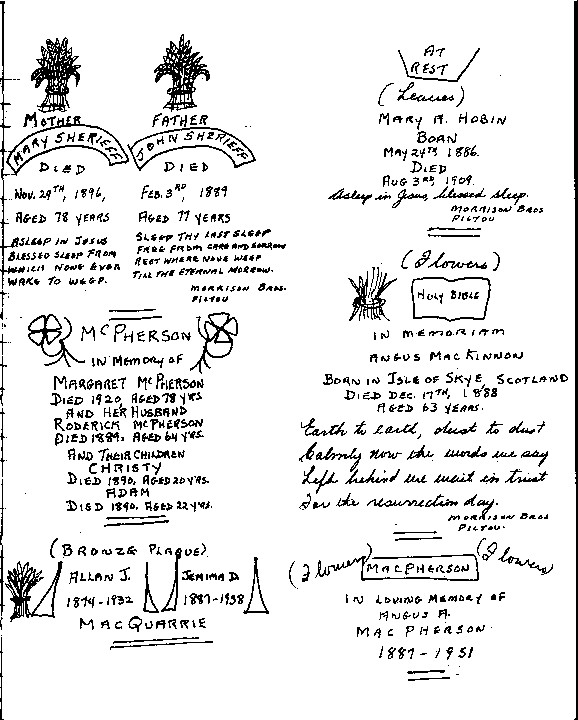 MOTHER
MARY SHERIEFF
DIED
NOV. 29TH, 1896,
AGED 78 YEARS
ASLEEP IN JESUS
BLESSED SLEEP FROM
WHICH NONE EVER
WAKE TO WEEP.
FATHER
JOHN SHERIEFF
DIED
FEB. 3RD, 1889
AGED 77 YEARS
SLEEP THY LAST SLEEP
FREE FROM CARE AND SORROW
REST WHERE NONE WEEP
TILL THE ETERNAL MORROW.
MORRISON BROS.
PICTOU
MCPHERSON
IN MEMORY OF
MARGARET MCPHERSON
DIED 1920, AGED 78 YRS
AND HER HUSBAND
RODERICK MCPHERSON
DIED 1889, AGED 64 YRS.
AND THEIR CHILDREN
CHRISTY
DIED 1890, AGED 20 YRS.
ADAM
DIED 1890, AGED 22 YRS.
(BRONZE PLAQUE)
ALLAN J. JEMIMA D.
1874-1932 1887-1958
MACQUARRIE
AT
REST
(Leaves)
MARY A. HOBIN
BORN
MAY 24TH, 1886.
DIED
AUG 3RD, 1909.
Asleep in Jesus, blessed sleep.
MORRISON BROS
PICTOU
(Flowers)
HOLY BIBLE
IN MEMORIAM
ANGUS MACKINNON
BORN IN ISLE OF SKYE, SCOTLAND
DIED DEC. 17TH, 1888
AGED 63 YEARS.
Earth to earth, dust to dust
Calmly now the words we say
Left behind we wait in trust
For the resurrection day.
MORRISON BROS
PICTOU.
(Flowers) MACPHERSON (Flowers)
IN LOVING MEMORY OF
ANGUS A.
MACPHERSON
1887-1951